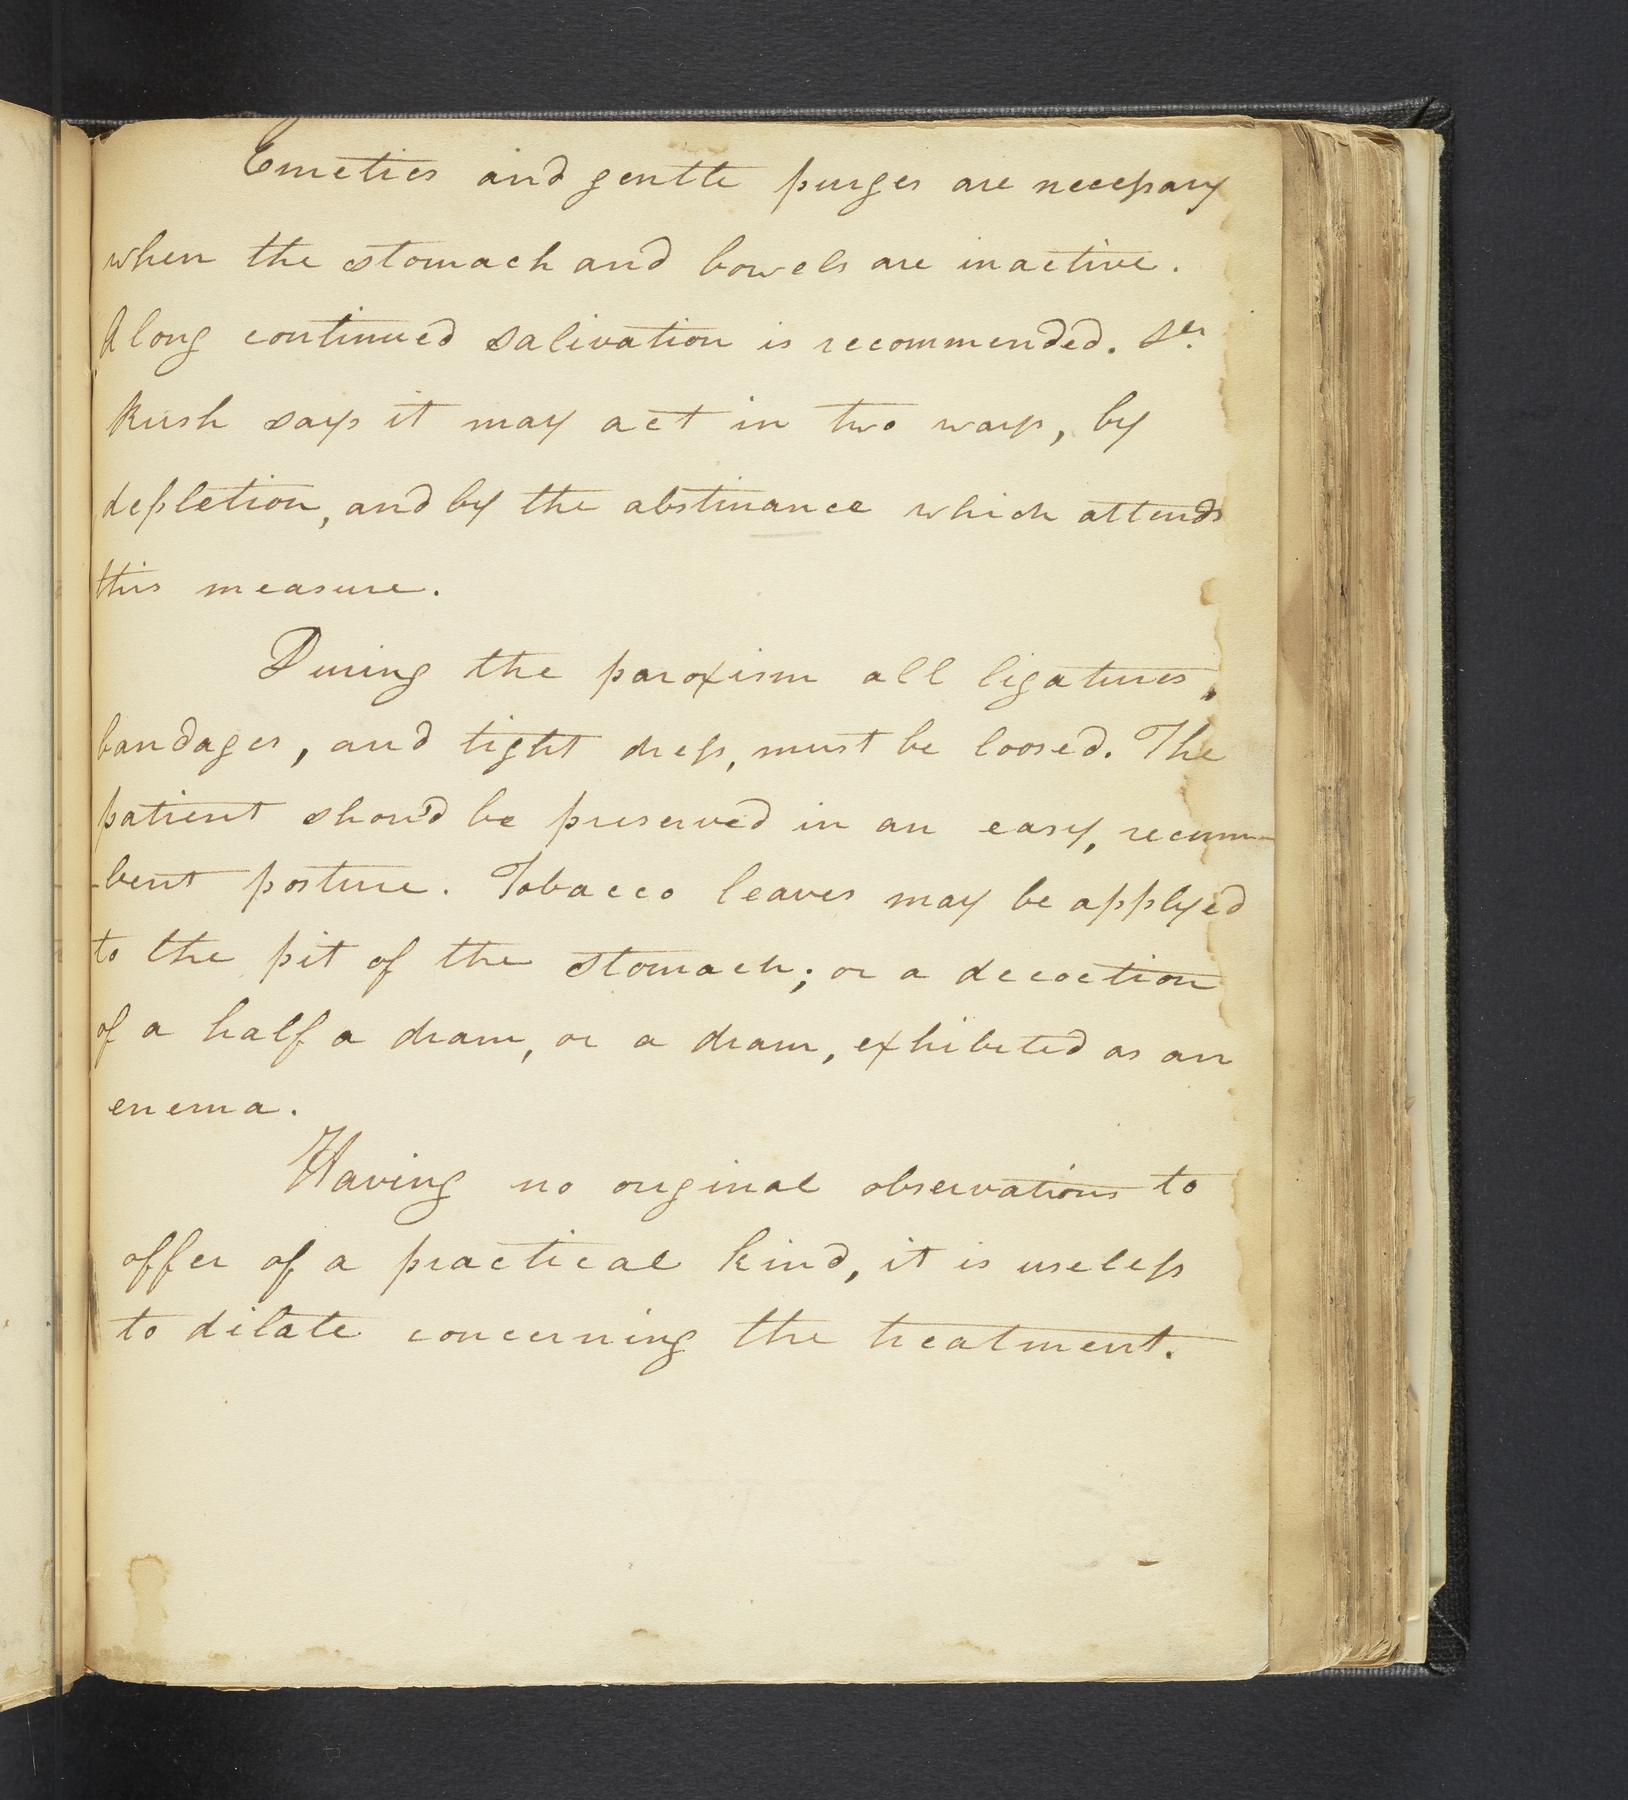 Emetics and gentle purges are necessary
when the stomach and bowels are inactive.
A long continued salivation is recommended. Dr.
Rush says it may act in two ways, by
depletion, and by the abstinance which attends
this measure.
During the paroxism all ligatures,
bandages, and tight dress, must be loosed. The
patient shou'd be preserved in an easy, recum-
-bent posture. Tobacco leaves may be applyed
to the pit of the stomach; or a decoction
of a half a dram, or a dram, exhibited as an
enema.
Having no original observations to
offer of a practical kind, it is useless
to dilate concerning the treatment.